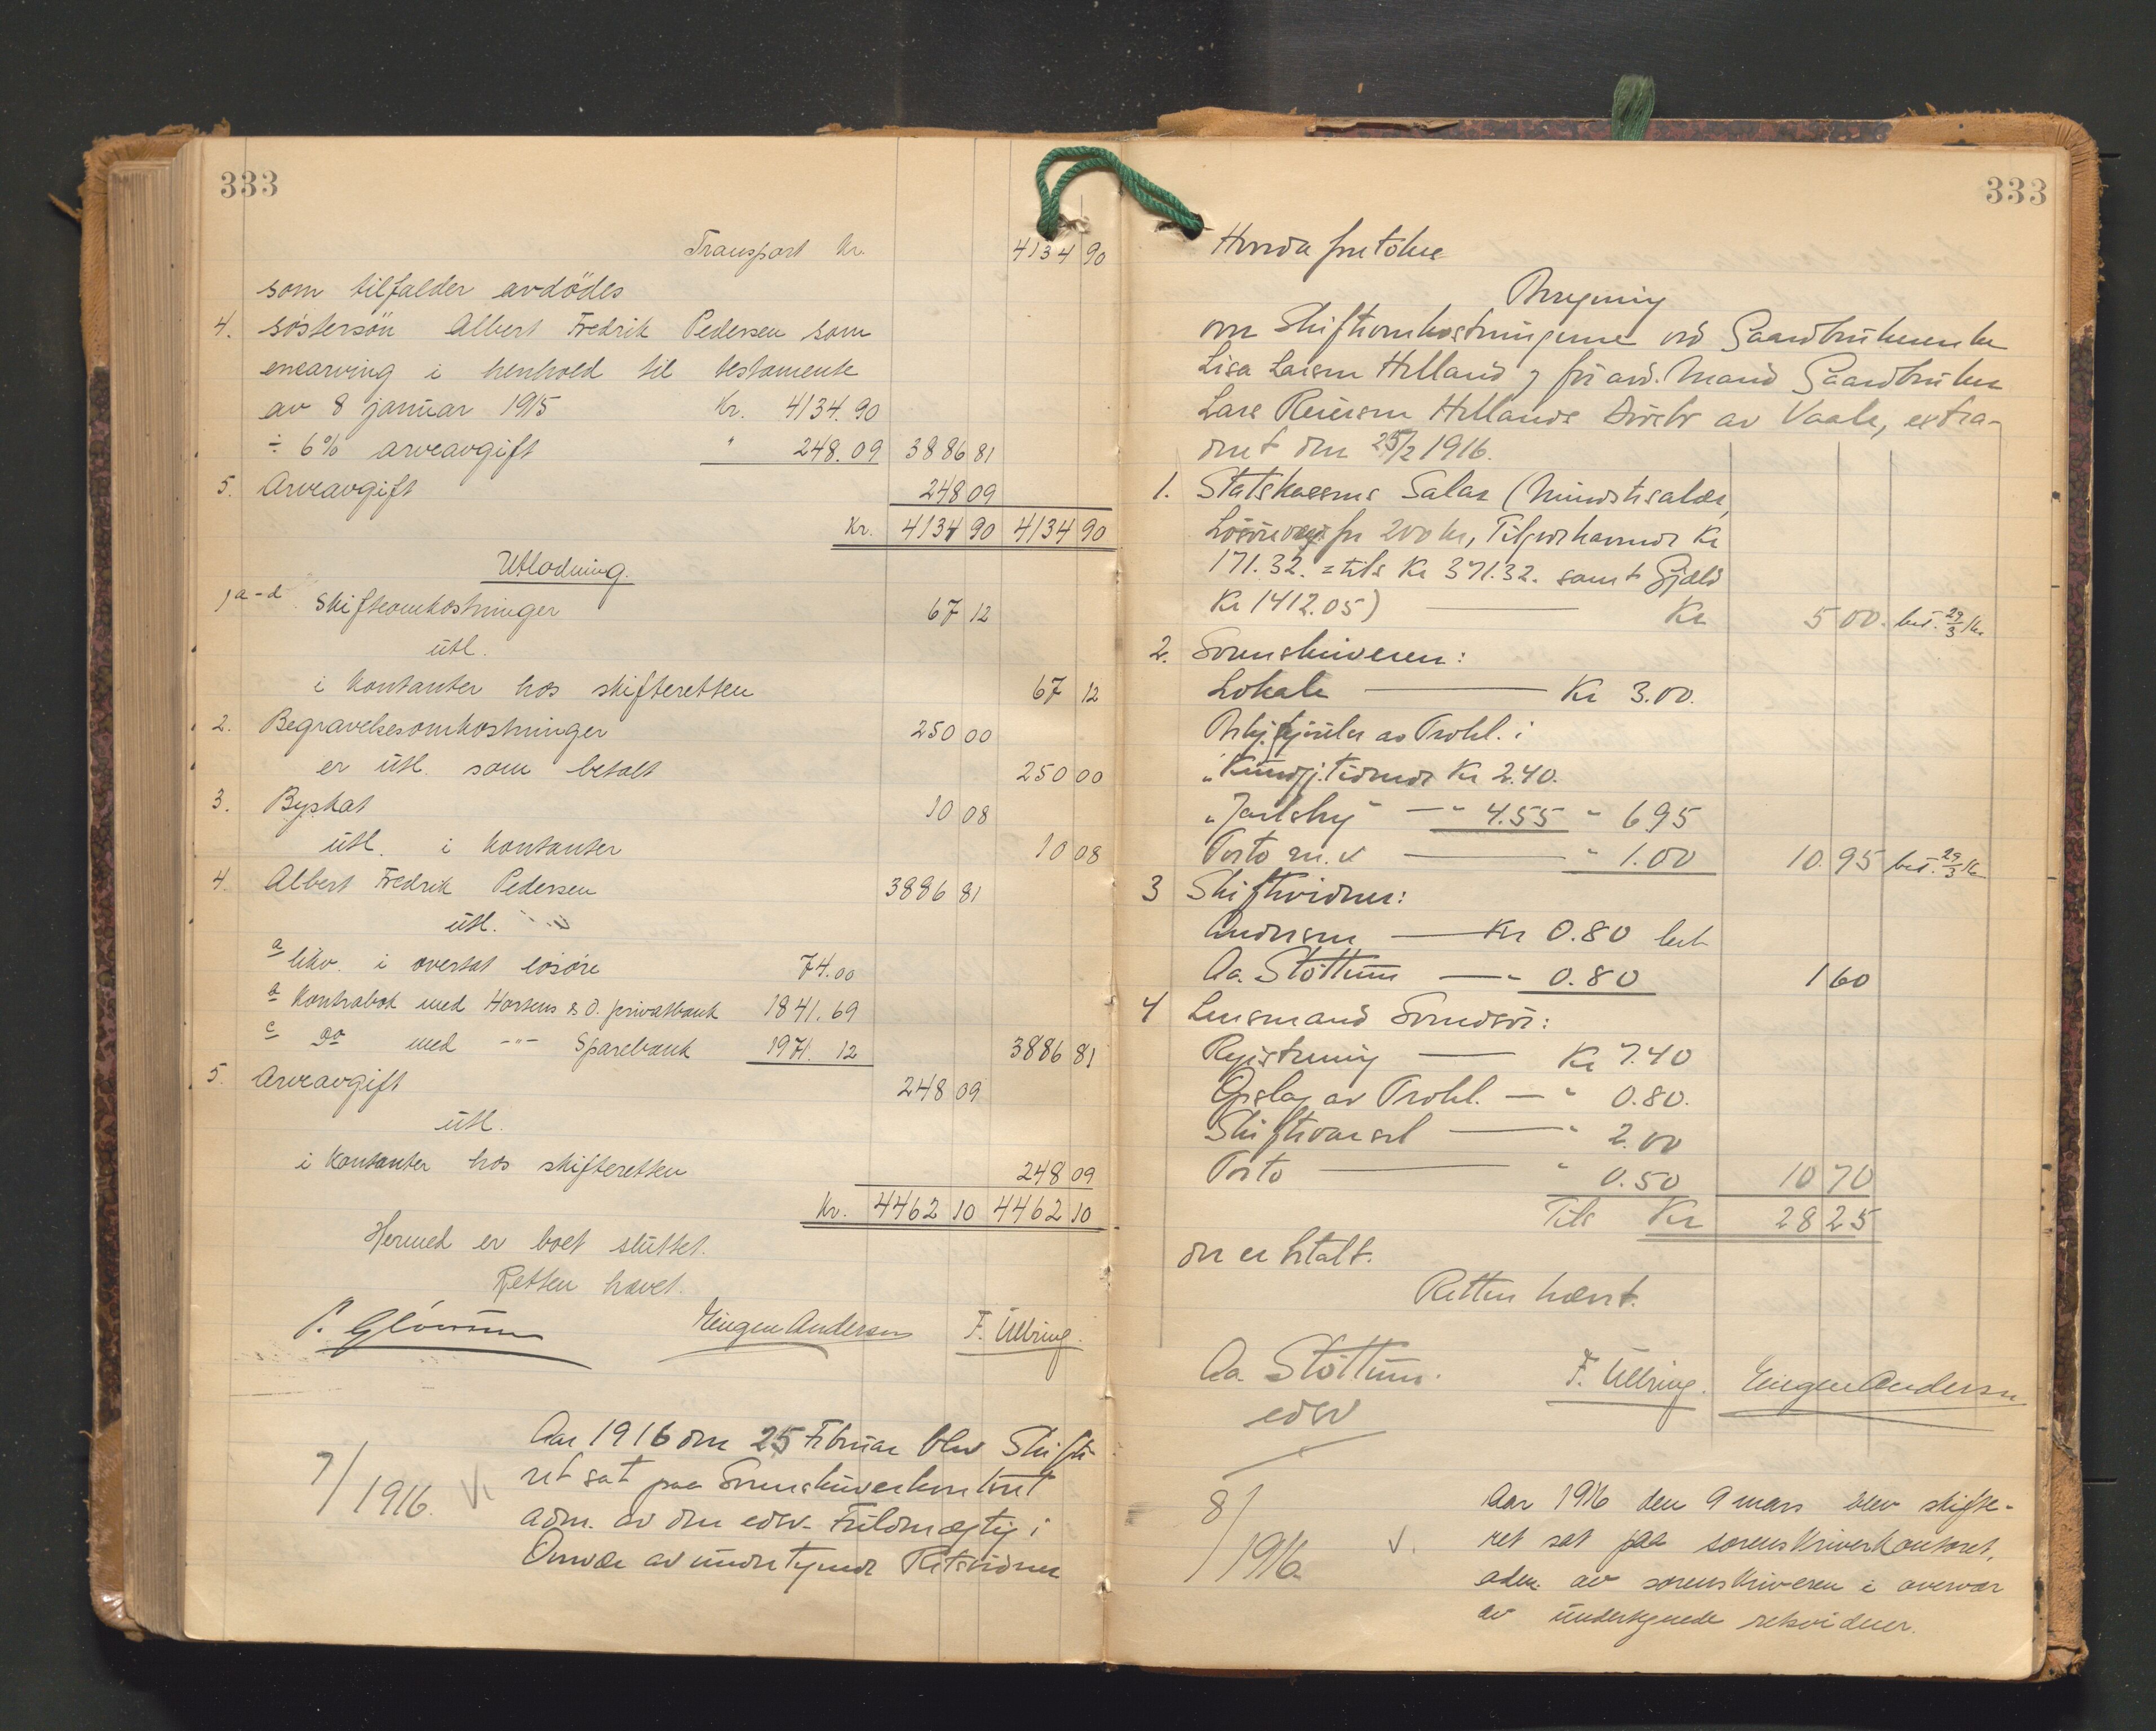 333
Transport Kr. 4134 90
som tilfalder avdödes
4. söstersön Albert Fredrik Pedersen som
enearving i henhold til testamente
av 8 januar 1915 Kr. 4134.90
÷ 6% arveavgift " 248.09 3886 81
5. Arveavgift 248 09
Kr. 4134 90 4134 90
Utlodning.
1 a-d Skifteomkostninger 67 12
utl.
i kontanter hos skifteretten 67 12
2. Begravelsesomkostninger 250 00
er utl. som betalt 250 00
3. Byskat 10 08
utl. i kontanter 10 08
4. Albert Fredrik Pedersen 3886 81
utl.
a likv. i overtat lösöre 74.00
b Kontrabok med Hortens & O. privatbank 1841.69
c do med -"- Sparebank 1971.12 3886 81
5. Arveavgift 248 09
utl.
i kontanter hos skifteretten 248 09
Kr. 4462 10 4462 10
Hermed er boet sluttet.
Retten hævet.
Eugen Andersen F. Ullring.
7/1916. Aar 1916 den 25 Februar blev Skifte
ret sat paa Sorenskriverkontoret
adm. av den edsv. Fuldmægtig i
Overvær av undertegnede Retsvidner
333
Hvorda foretokes
Beregning
over Skifteomkostningerne ved Gaardbrukerenke
Lisa Larsen Helland og før avd. Mand Gaardbruker
Lars Reiersen Hellands Dødsbo av Vaale, extra-
dert den 25/2 1916.
1. Statskassens Salar (Mindstesalær,
Lösöre for 200 kr, Tilgodehavende Kr
171.32. = tils Kr 371.32. samt Gjæld
Kr 1412.05) Kr 5 00. bet. 29/3
2. Sorenskriveren:
Lokale Kr 3.00.
av Prokl. i
"Kundgj.tidende Kr 2.40.
"Jarlsberg" —"— 4.55 " 6.95
Porto m.v " 1.00 10.95 bet. 29/3
3 Skiftevidner:
Andersen Kr 0.80 bet
Aa. Støttum —" 0.80 1 60
4 Lensmand
Registrering Kr 7.40
Opslag av Prokl. —" 0.80.
Skiftevarsel " 2.00
Porto " 0.50 10 70
Tils Kr 28 25
der er betalt.
Retten hævet.
Aa. Støttum. F. Ullring. Eugen Andersen
edsv
8/1916. Aar 1916 den 9 mars blev skifte-
ret sat paa sorenskriverkontoret,
adm. av sorenskriveren i overvær
av undertegnede retsvidner.